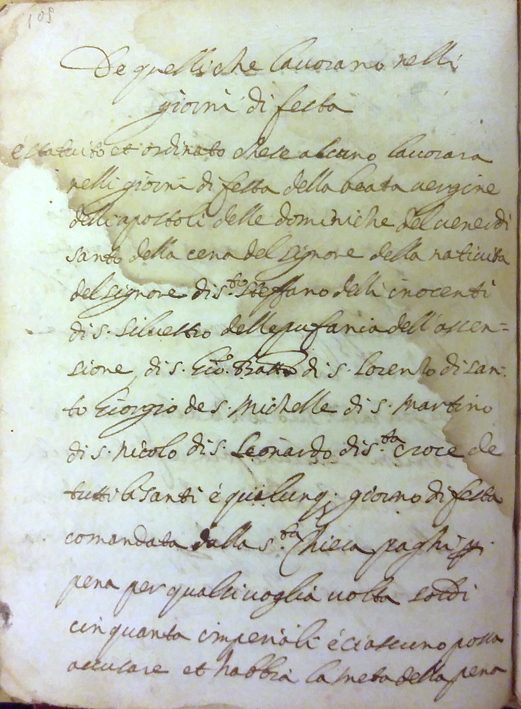 108
De quelli che lavorano nelli
giorni di festa
é statuito et ordinato che se alcuno lavorara
nelli giorni di festa della beata vergine
delli apostoli delle dominiche del venerdi
santo della cena del signore della nativita
del signore di s.to steffano delli inocenti
di s. silvestro dell epifania dell' ascen=
sione, di s. Gio. Batta di s. Lorenzo di san
to Giorgio de s. Michelle di s. Martino
di s. nicolo di s. Leonardo di s.ta croce de
tutti li santi é qualunq. giorno di festa
comandata dalla s.ta Chiesa paghi p.
pena per qualsivoglia volta soldi
cinquanta imperiali é ciascuno possa
accusare et habbia la meta della pena